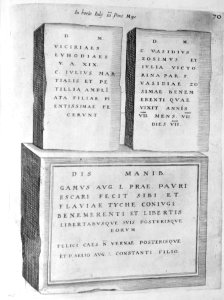 D M
VICIRIAES
EVHODIAES
V. A. XIX.
C. IVLIVS MAR
TIALIS ET PE
TILLIA AMPLI
ATA FILIAE PI
ENTISSIMAE FE
CERVNT
D M
C VASIDIVS
ZOSIMVS ET
IVLIA VICTO
RINA PAR F
VASIDIAE ZO
SIMAE BENEM
ERENTI QVAE
VIXIT ANNIS
VII. MENS. VII.
DIES VII.
DIS MANIB.
GAMVS AVG. L PRAE. PAVRI
ESCARI FECIT SIBI ET
FLAVIAE TYCHE CONIVGI
BENEMERENTI ET LIBERTIS
LIBERTABVSQVE SVIS POSTERISQVE
EORVM
FELICI CAES. N VERNAE POSTERISQVE
CONSTANTI FILIO.